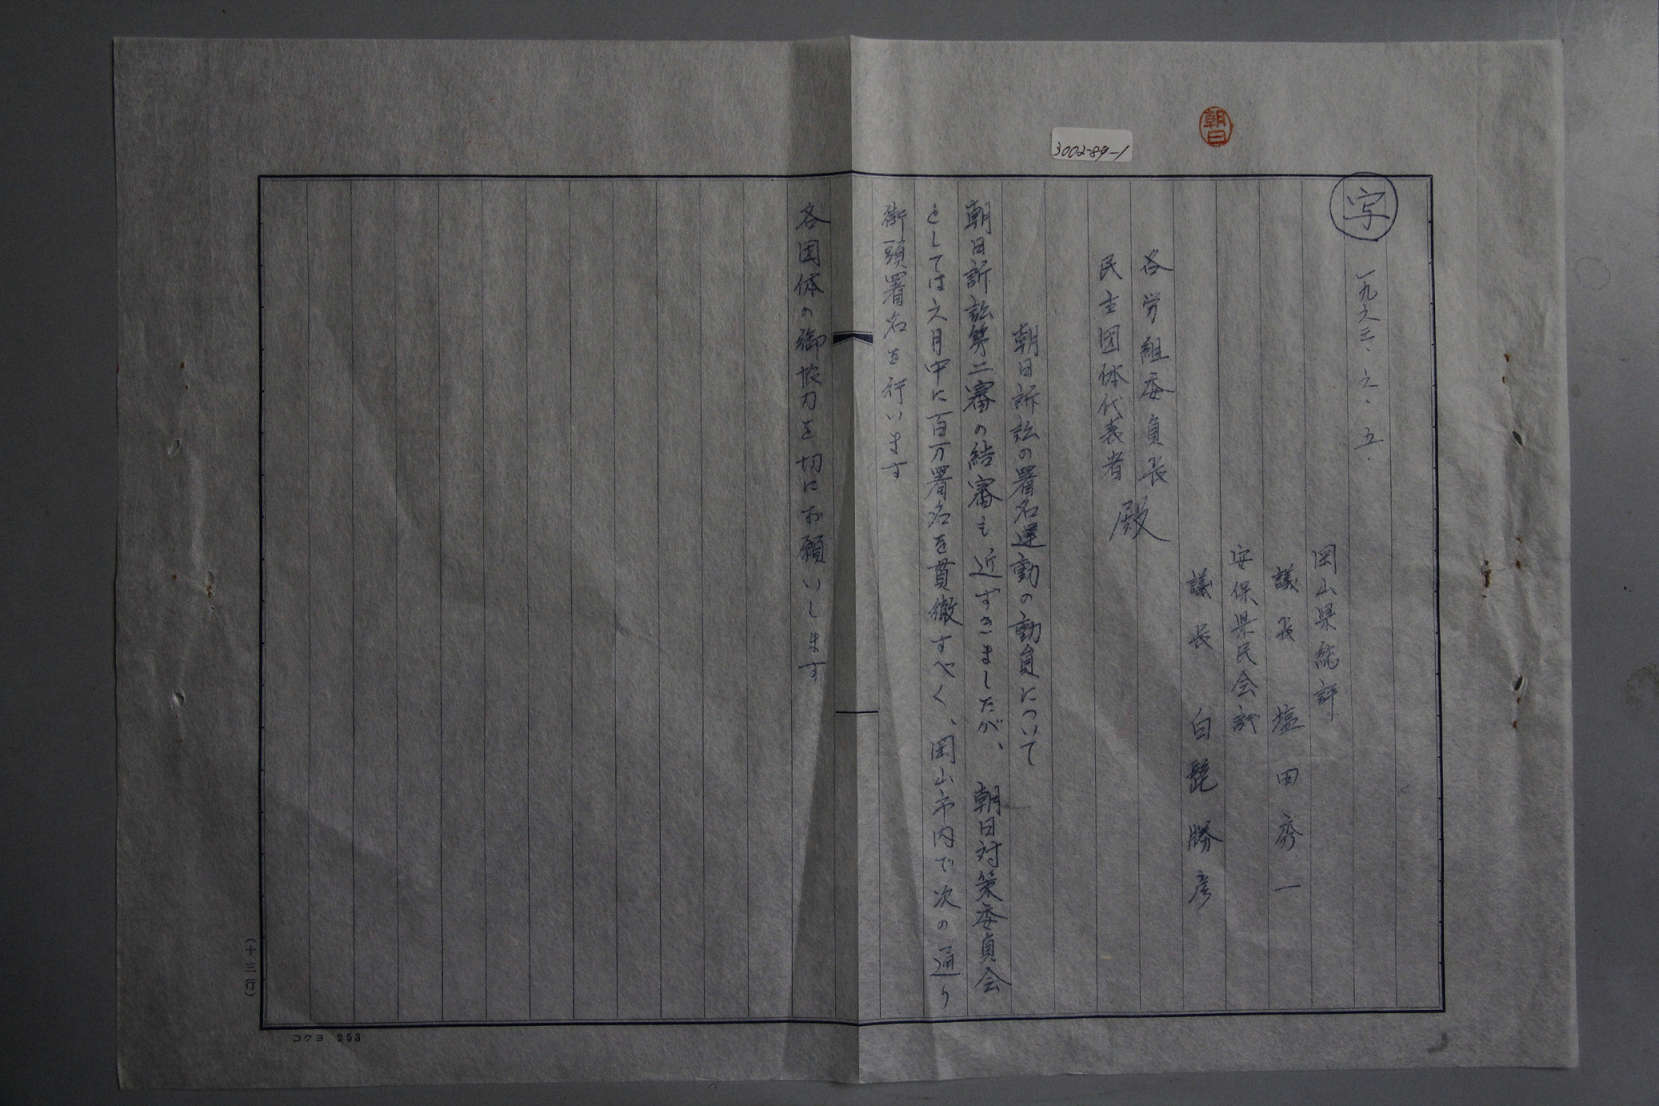 朝日
3002-89-1
写
一九六三、六、五、
岡山県総評
議長 塩田秀一
安保県民会議
議長 白髭勝彦
各労組委員長
民主団体代表者
殿
朝日訴訟の署名運動の動員について
朝日訴訟第二審の結審も近ずきましたが、朝日対策委員会
としては六月中に百万署名を貫徹すべく、岡山市内で次の通り
街頭署名を行います
各団体の御協力を切にお願いします
(十三行)
コクヨ 253